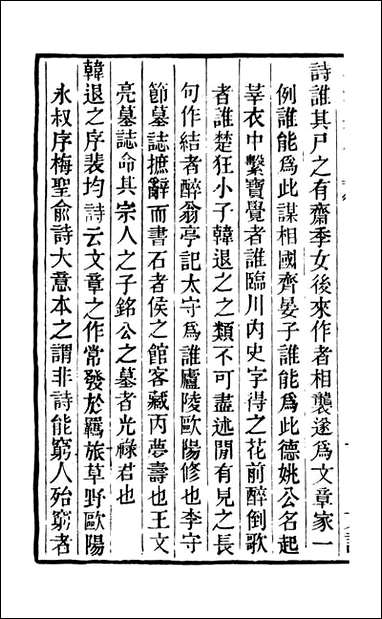 詩誰其尸之有齋季女後來作者相襲遂爲文章家一
例誰能爲此謀相國齊晏子誰能爲此德姚公名起
莘衣中繫寶覺者誰臨川内史字得之花前醉倒歌
者誰楚狂小子韓退之之類不可盡述閒有見之長
句作結者醉翁亭記太守爲誰廬陵歐陽修也李守
節墓誌摭辭而書石者侯之館客臧丙夢壽也王文
亮墓誌命其宗人之子銘公之墓者光祿君也
韓退之序裴均詩云文章之作常發於羈旅草野歐陽
永叔序梅聖俞詩大意本之謂非詩能窮人殆窮者